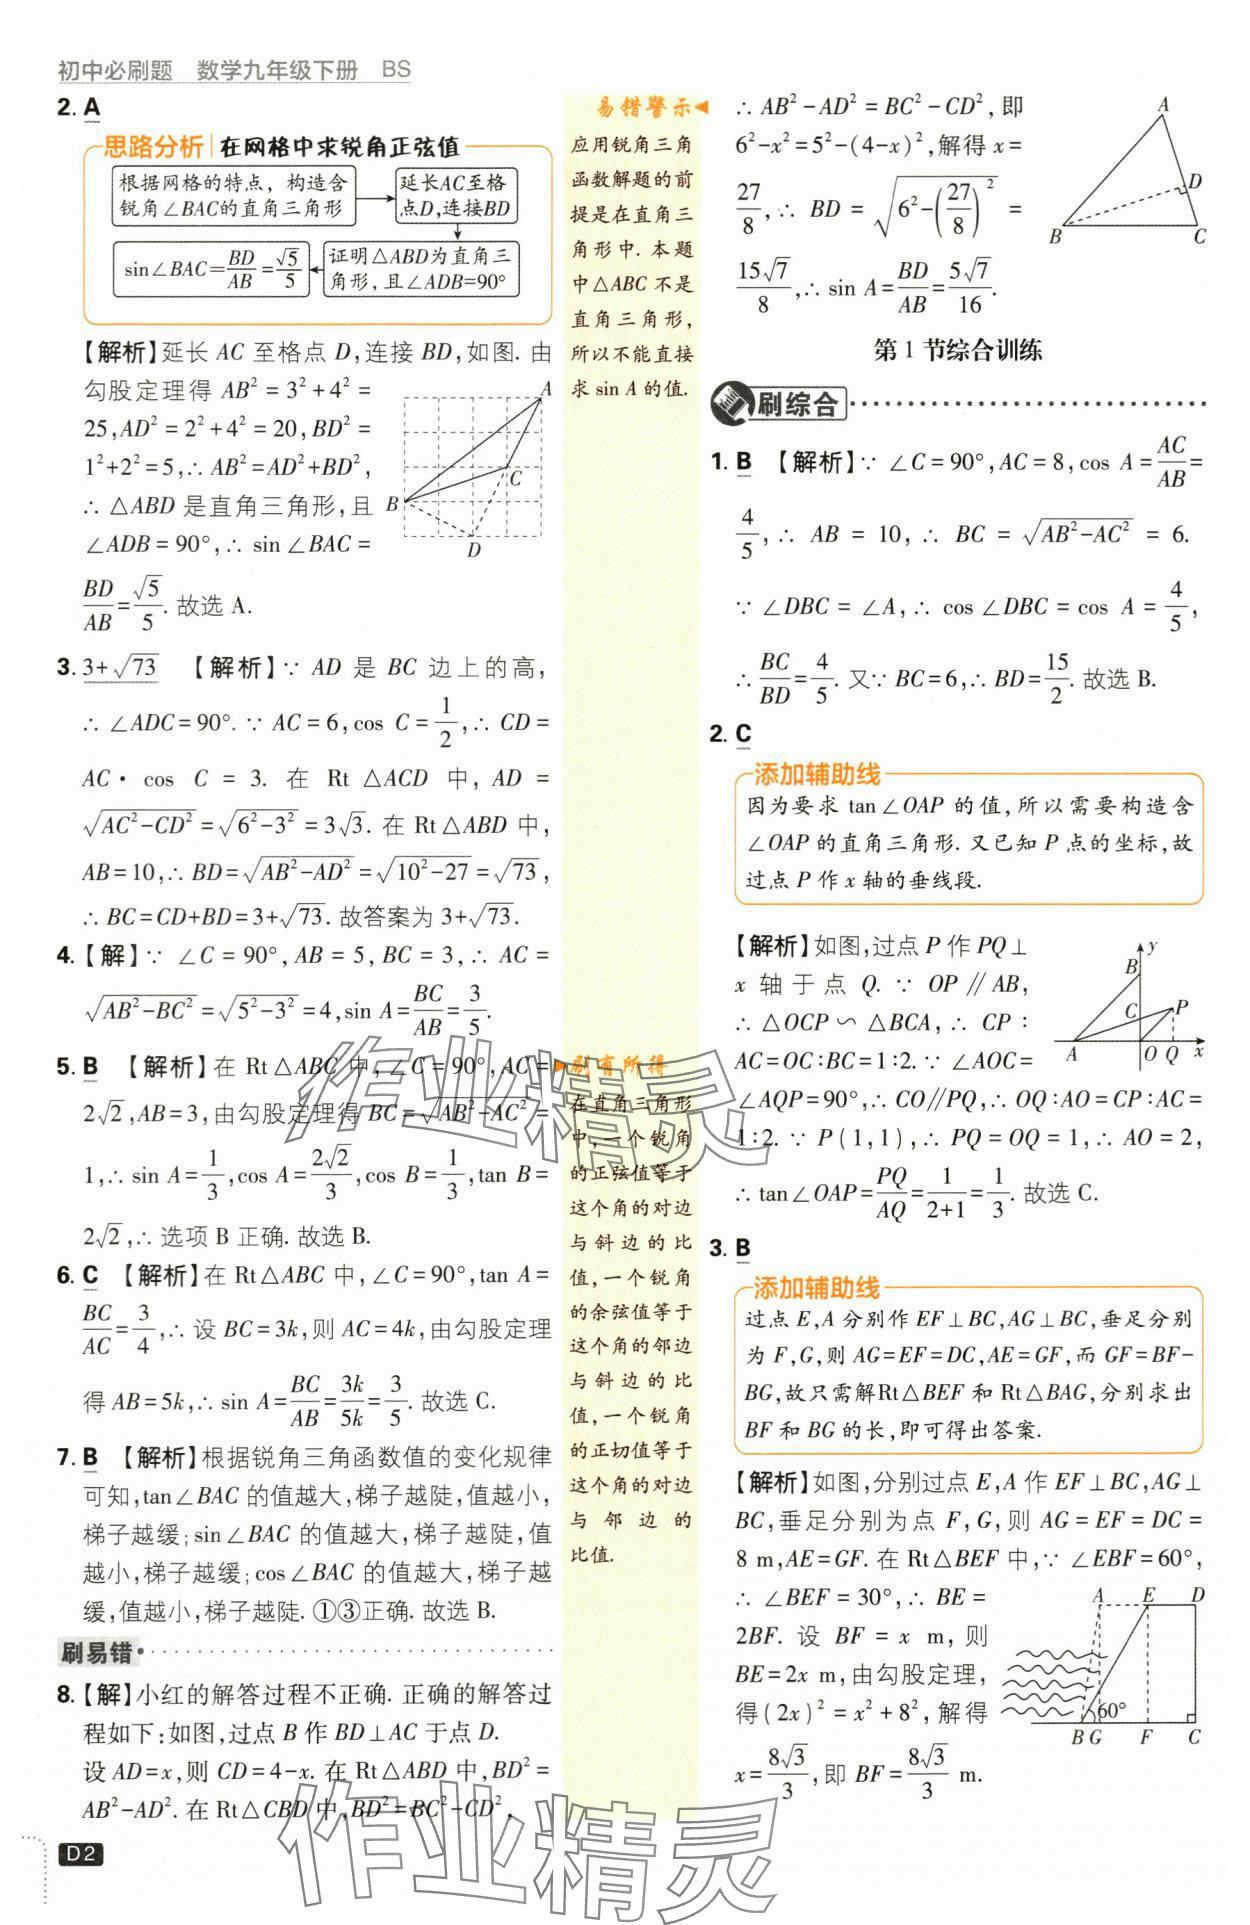 初中必刷题 数学九年级下册 BS
2. A
思路分析 | 在网格中求锐角正弦值
根据网格的特点，构造含
锐角∠BAC的直角三角形
延长AC至格
点D,连接BD
证明△ABD为直角三
角形，且∠ADB=90°
sin∠BAC=BD/AB=√5/5
【解析】延长 AC 至格点 D,连接 BD,如图. 由
勾股定理得 AB²=3²+4²=
25,AD²=2²+4²=20,BD²=
1²+2²=5,∴ AB²=AD²+BD²,
∴ △ABD 是直角三角形,且
∠ADB=90°,∴ sin∠BAC=
BD/AB=√5/5. 故选 A.
A
B
C
D
3. 3+√73 【解析】∵ AD 是 BC 边上的高,
∴ ∠ADC=90°. ∵ AC=6,cos C=1/2,∴ CD=
AC· cos C=3. 在 Rt△ACD 中, AD=
√(AC²-CD²)=√(6²-3²)=3√3. 在 Rt△ABD 中,
AB=10,∴ BD=√(AB²-AD²)=√(10²-27)=√73,
∴ BC=CD+BD=3+√73. 故答案为 3+√73.
4. 【解】∵ ∠C=90°,AB=5,BC=3,∴ AC=
√(AB²-BC²)=√(5²-3²)=4,sin A=BC/AB=3/5.
5. B 【解析】在 Rt△ABC 中,∠C=90°,AC=
2√2,AB=3,由勾股定理得 BC=√(AB²-AC²)=
1,∴ sin A=1/3,cos A=2√2/3,cos B=1/3,tan B=
2√2,∴ 选项 B 正确. 故选 B.
6. C 【解析】在 Rt△ABC 中,∠C=90°,tan A=
BC/AC=3/4,∴ 设 BC=3k,则 AC=4k,由勾股定理
得 AB=5k,∴ sin A=BC/AB=3k/5k=3/5. 故选 C.
7. B 【解析】根据锐角三角函数值的变化规律
可知,tan∠BAC 的值越大,梯子越陡,值越小,
梯子越缓;sin∠BAC 的值越大,梯子越陡,值
越小,梯子越缓;cos∠BAC 的值越大,梯子越
缓,值越小,梯子越陡. ①③正确. 故选 B.
刷易错
8. 【解】小红的解答过程不正确. 正确的解答过
程如下:如图,过点 B 作 BD⊥AC 于点 D.
设 AD=x,则 CD=4-x. 在 Rt△ABD 中,BD²=
AB²-AD². 在 Rt△CBD 中,BD²=BC²-CD².
D2
易错警示
应用锐角三角
函数解题的前
提是在直角三
角形中. 本题
中△ABC 不是
直角三角形,
所以不能直接
求 sin A 的值.
刷有所得
在直角三角形
中,一个锐角
的正弦值等于
这个角的对边
与斜边的比
值,一个锐角
的余弦值等于
这个角的邻边
与斜边的比
值,一个锐角
的正切值等于
这个角的对边
与邻边的
比值.
∴ AB²-AD²=BC²-CD²,即
6²-x²=5²-(4-x)²,解得 x=
27/8,∴ BD=√(6²-(27/8)²)=
15√7/8,∴ sin A=BD/AB=5√7/16.
A
D
B
C
第 1 节综合训练
刷综合
1. B 【解析】∵ ∠C=90°,AC=8,cos A=AC/AB=
4/5,∴ AB=10,∴ BC=√(AB²-AC²)=6.
∵ ∠DBC=∠A,∴ cos∠DBC=cos A=4/5,
∴ BC/BD=4/5. 又∵ BC=6,∴ BD=15/2. 故选 B.
2. C
添加辅助线
因为要求 tan∠OAP 的值,所以需要构造含
∠OAP 的直角三角形. 又已知 P 点的坐标,故
过点 P 作 x 轴的垂线段.
【解析】如图,过点 P 作 PQ⊥
x 轴于点 Q. ∵ OP∥AB,
∴ △OCP∽△BCA,∴ CP∶
AC=OC∶BC=1∶2. ∵ ∠AOC=
∠AQP=90°,∴ CO∥PQ,∴ OQ∶AO=CP∶AC=
1∶2. ∵ P(1,1),∴ PQ=OQ=1,∴ AO=2,
∴ tan∠OAP=PQ/AQ=1/(2+1)=1/3. 故选 C.
y
B
C
P
A
O
Q
x
3. B
添加辅助线
过点 E,A 分别作 EF⊥BC,AG⊥BC,垂足分别
为 F,G,则 AG=EF=DC,AE=GF,而 GF=BF-
BG,故只需解Rt△BEF 和 Rt△BAG,分别求出
BF 和 BG 的长,即可得出答案.
【解析】如图,分别过点 E,A 作 EF⊥BC,AG⊥
BC,垂足分别为点 F,G,则 AG=EF=DC=
8 m,AE=GF. 在 Rt△BEF 中,∵ ∠EBF=60°,
∴ ∠BEF=30°,∴ BE=
2BF. 设 BF=x m,则
BE=2x m,由勾股定理,
得(2x)²=x²+8²,解得
x=8√3/3,即 BF=8√3/3 m.
A
E
D
60°
B
G
F
C
作业精灵
作业精灵